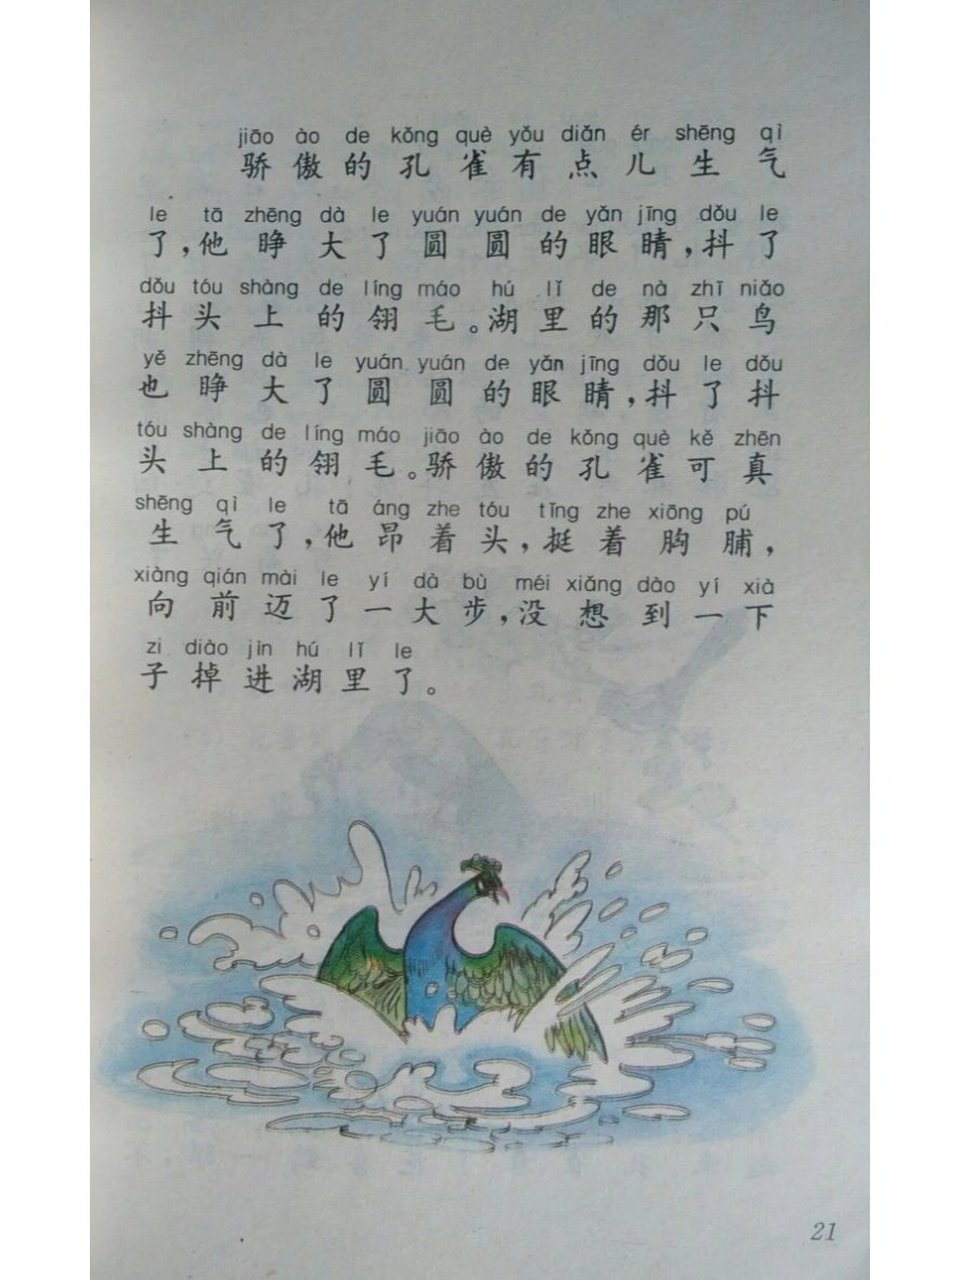 jiāo ào de kǒng què yǒu diǎn ér shēng qì
骄傲的孔雀有点儿生气
le tā zhēng dà le yuán yuán de yǎn jīng dǒu le
了,他睁大了圆圆的眼睛,抖了
dǒu tóu shàng de líng máo hú lǐ de nà zhī niǎo
抖头上的翎毛。湖里的那只鸟
yě zhēng dà le yuán yuán de yǎn jīng dǒu le dǒu
也睁大了圆圆的眼睛,抖了抖
tóu shàng de líng máo jiāo ào de kǒng què kě zhēn
头上的翎毛。骄傲的孔雀可真
shēng qì le tā áng zhe tóu tǐng zhe xiōng pú
生气了,他昂着头,挺着胸脯,
xiàng qián mài le yí dà bù méi xiǎng dào yí xià
向前迈了一大步,没想到一下
zi diào jìn hú lǐ le
子掉进湖里了。
21